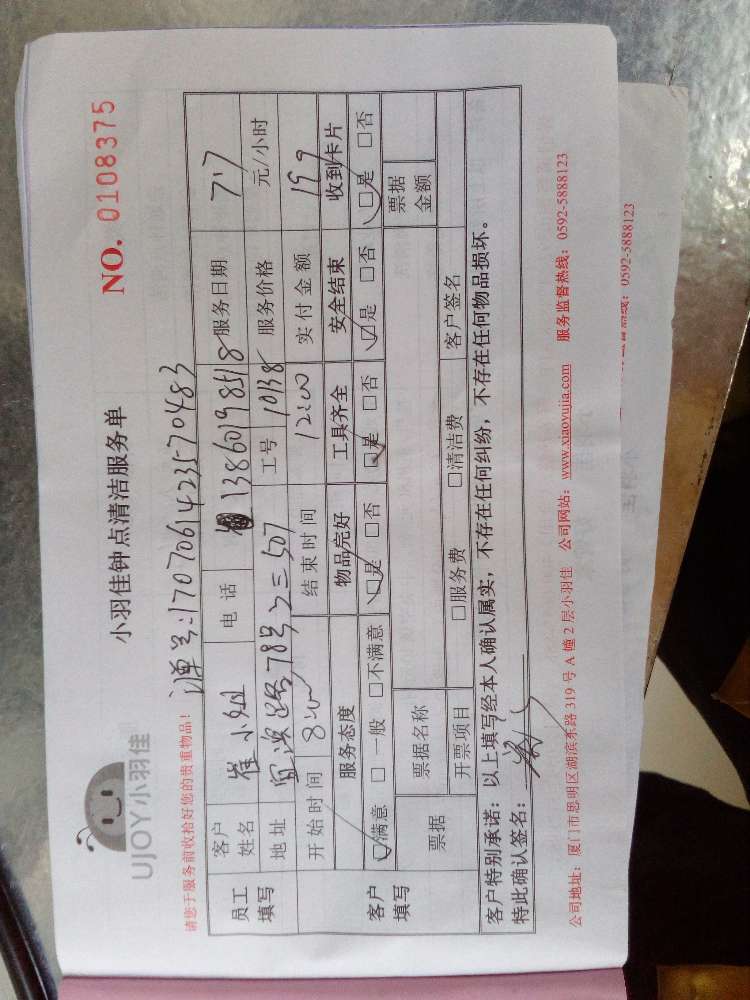 UJOY小羽佳
小羽佳钟点清洁服务单
NO. 0108375
请您于服务前收拾好您的贵重物品!
订单号:1707061423570483
员工填写 客户姓名 崔小姐 电话 13860198518 服务日期 7.7
地址 78号之三507 工号 10138 服务价格 元/小时
开始时间 8:00 结束时间 12:00 实付金额 199
客户填写 服务态度 物品完好 工具齐全 安全结束 收到卡片
☑满意 □一般 □不满意 ☑是 □否 ☑是 □否 ☑是 □否 ☑是 □否
票据 票据名称 票据金额
开票项目 □服务费 □清洁费 客户签名
客户特别承诺:以上填写经本人确认属实,不存在任何纠纷,不存在任何物品损坏。
特此确认签名:
公司地址:厦门市思明区湖滨东路 319 号 A 幢 2 层小羽佳 公司网站:www.xiaoyujia.com 服务监督热线:0592-5888123
0592-5888123